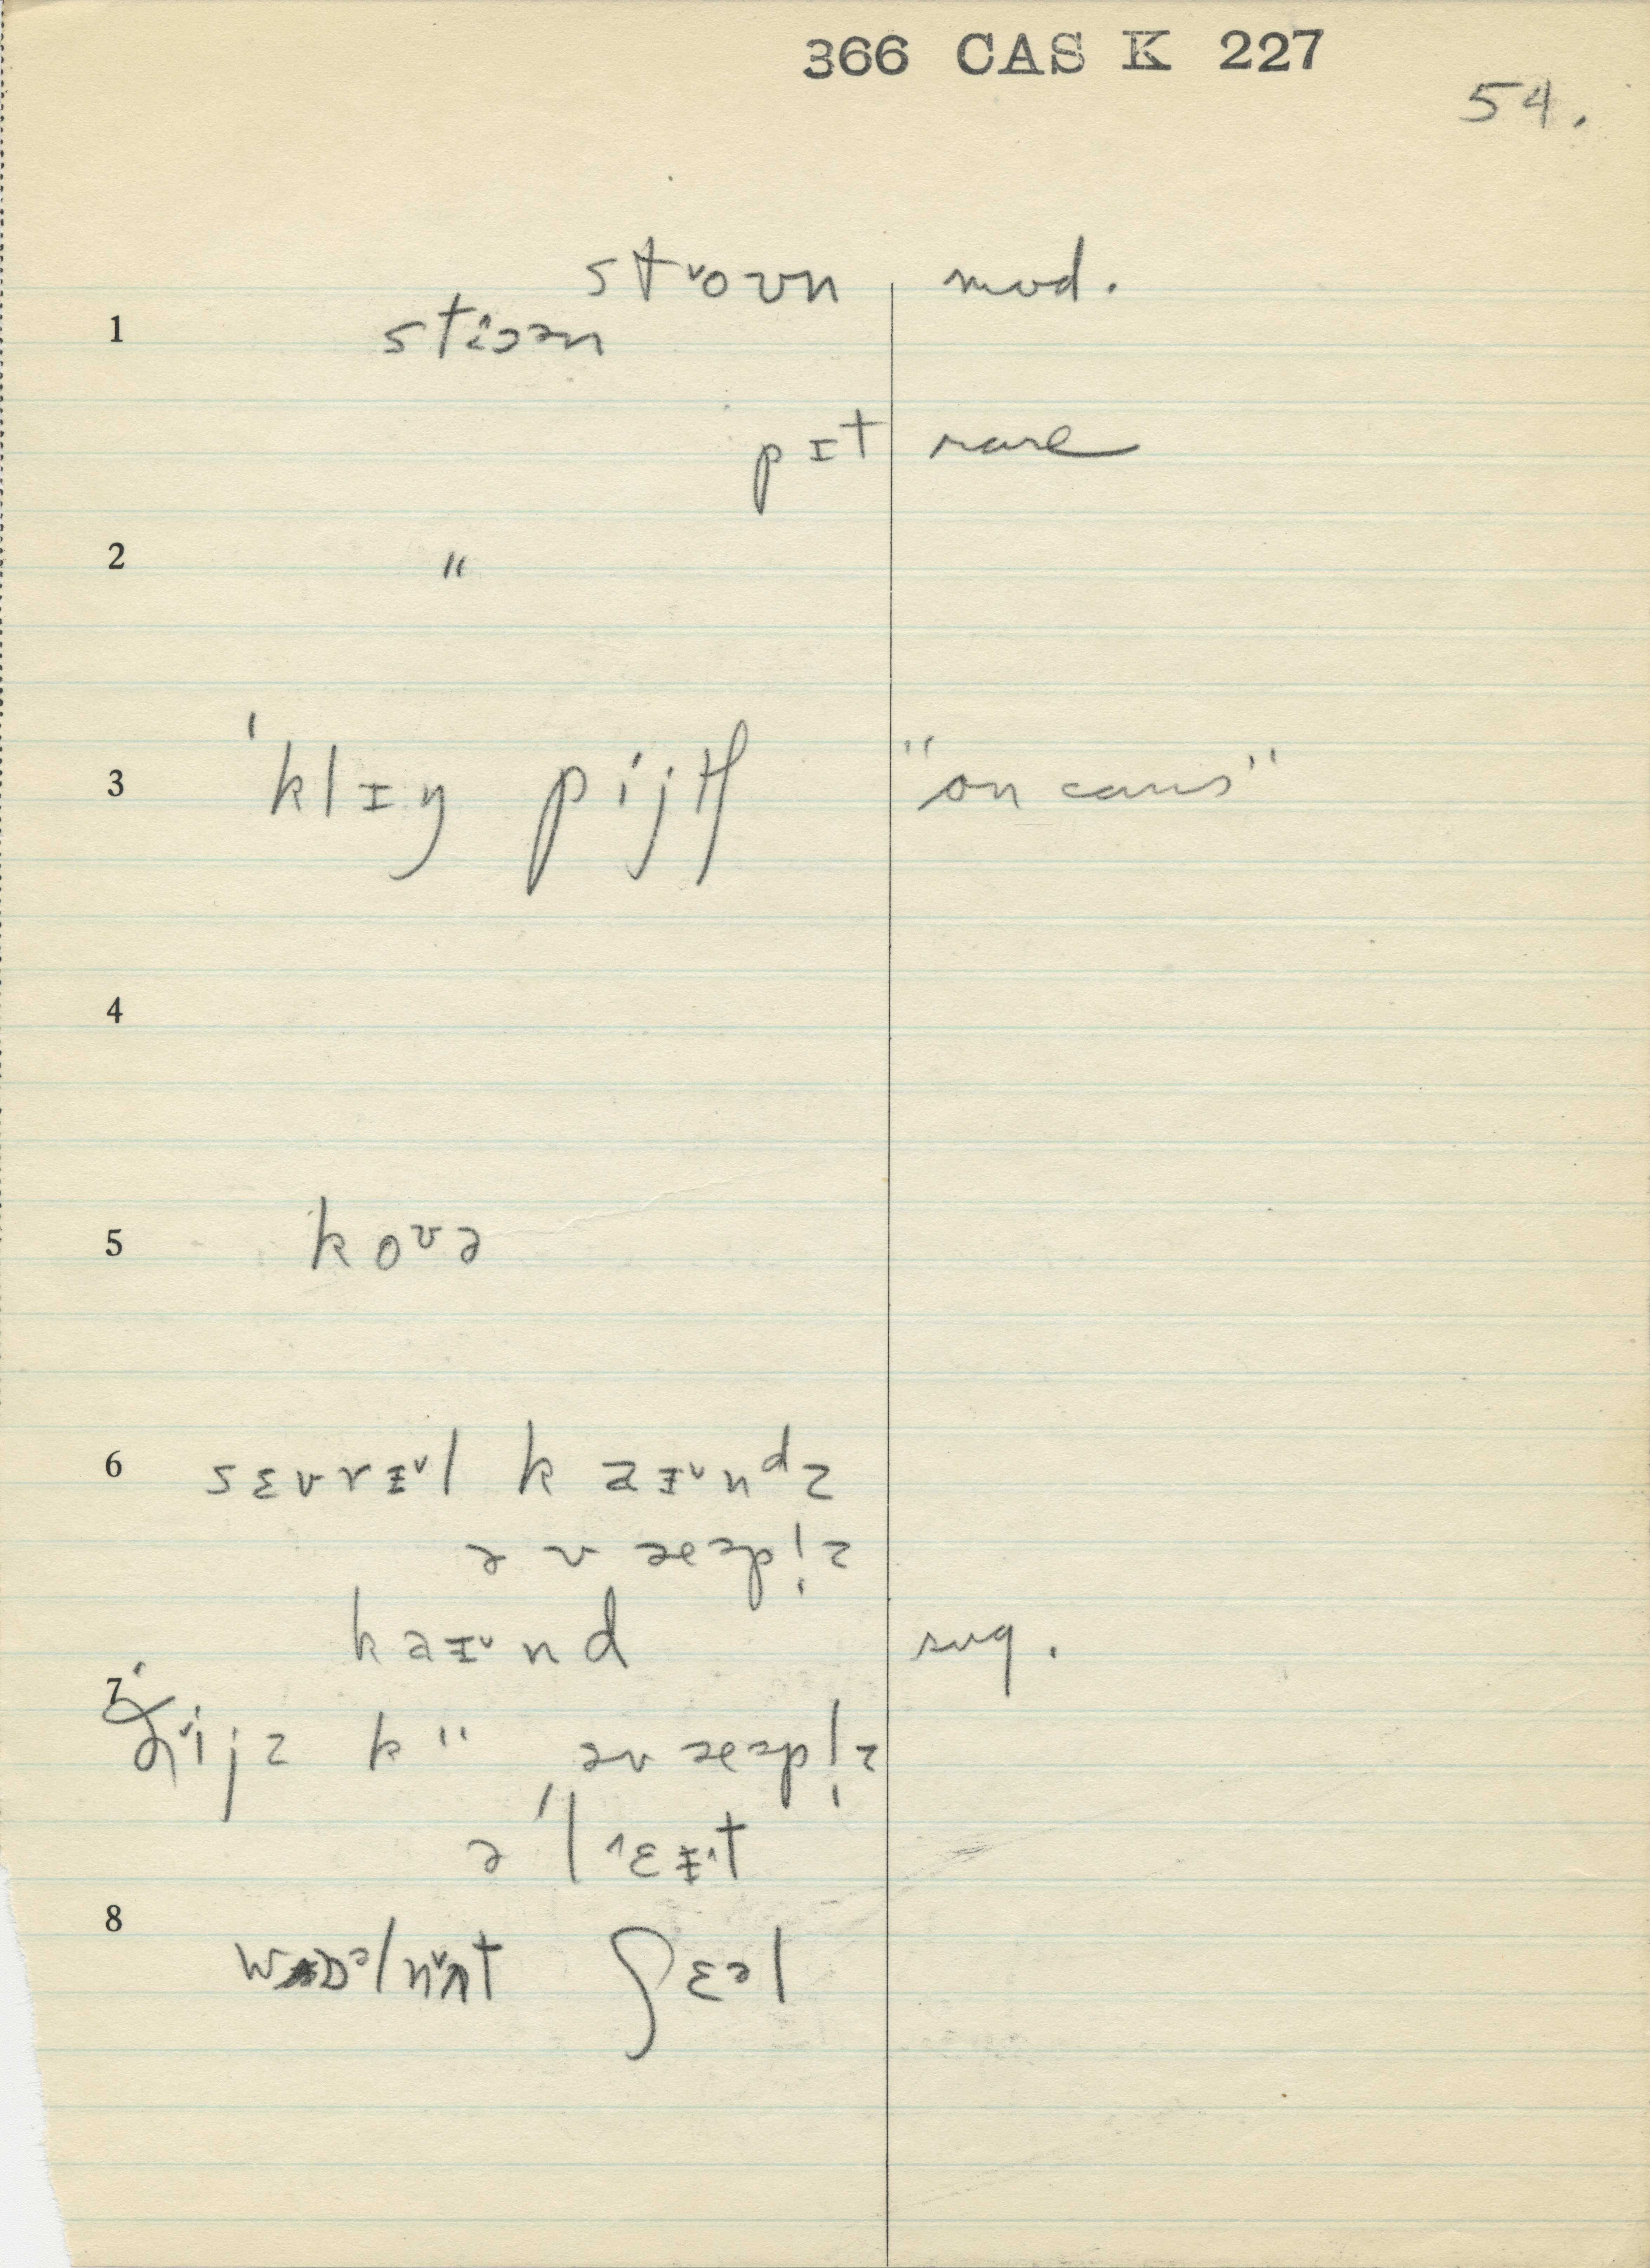 366 CAS K 227
54.
st˅oʊn mod.
1 stɔən
pɪt rare
2 "
3 'klɪŋ pijtʃ "on cans"
4
5 koʊə
6 sɛvrɪ˅l k aɪ˅ndz
əv æəpl̩z
kaɪ˅nd sug.
7 ð˅ijz k " əv æəpl̩z
ə'l^ɛɪ^t
8 wɒəlnʌ˅t ʃɛəl